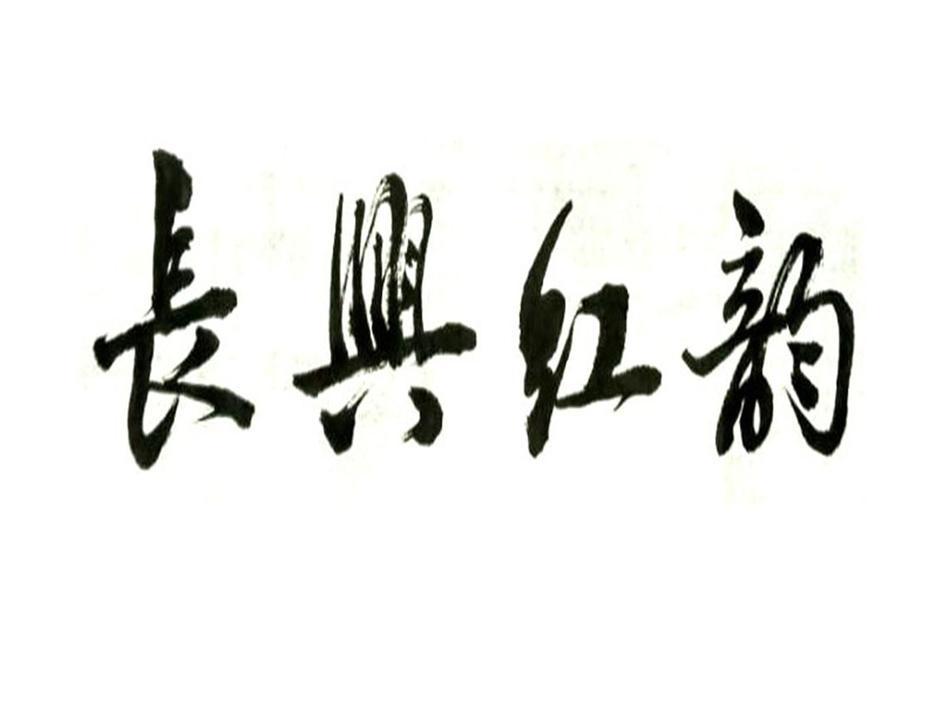 長興红韵